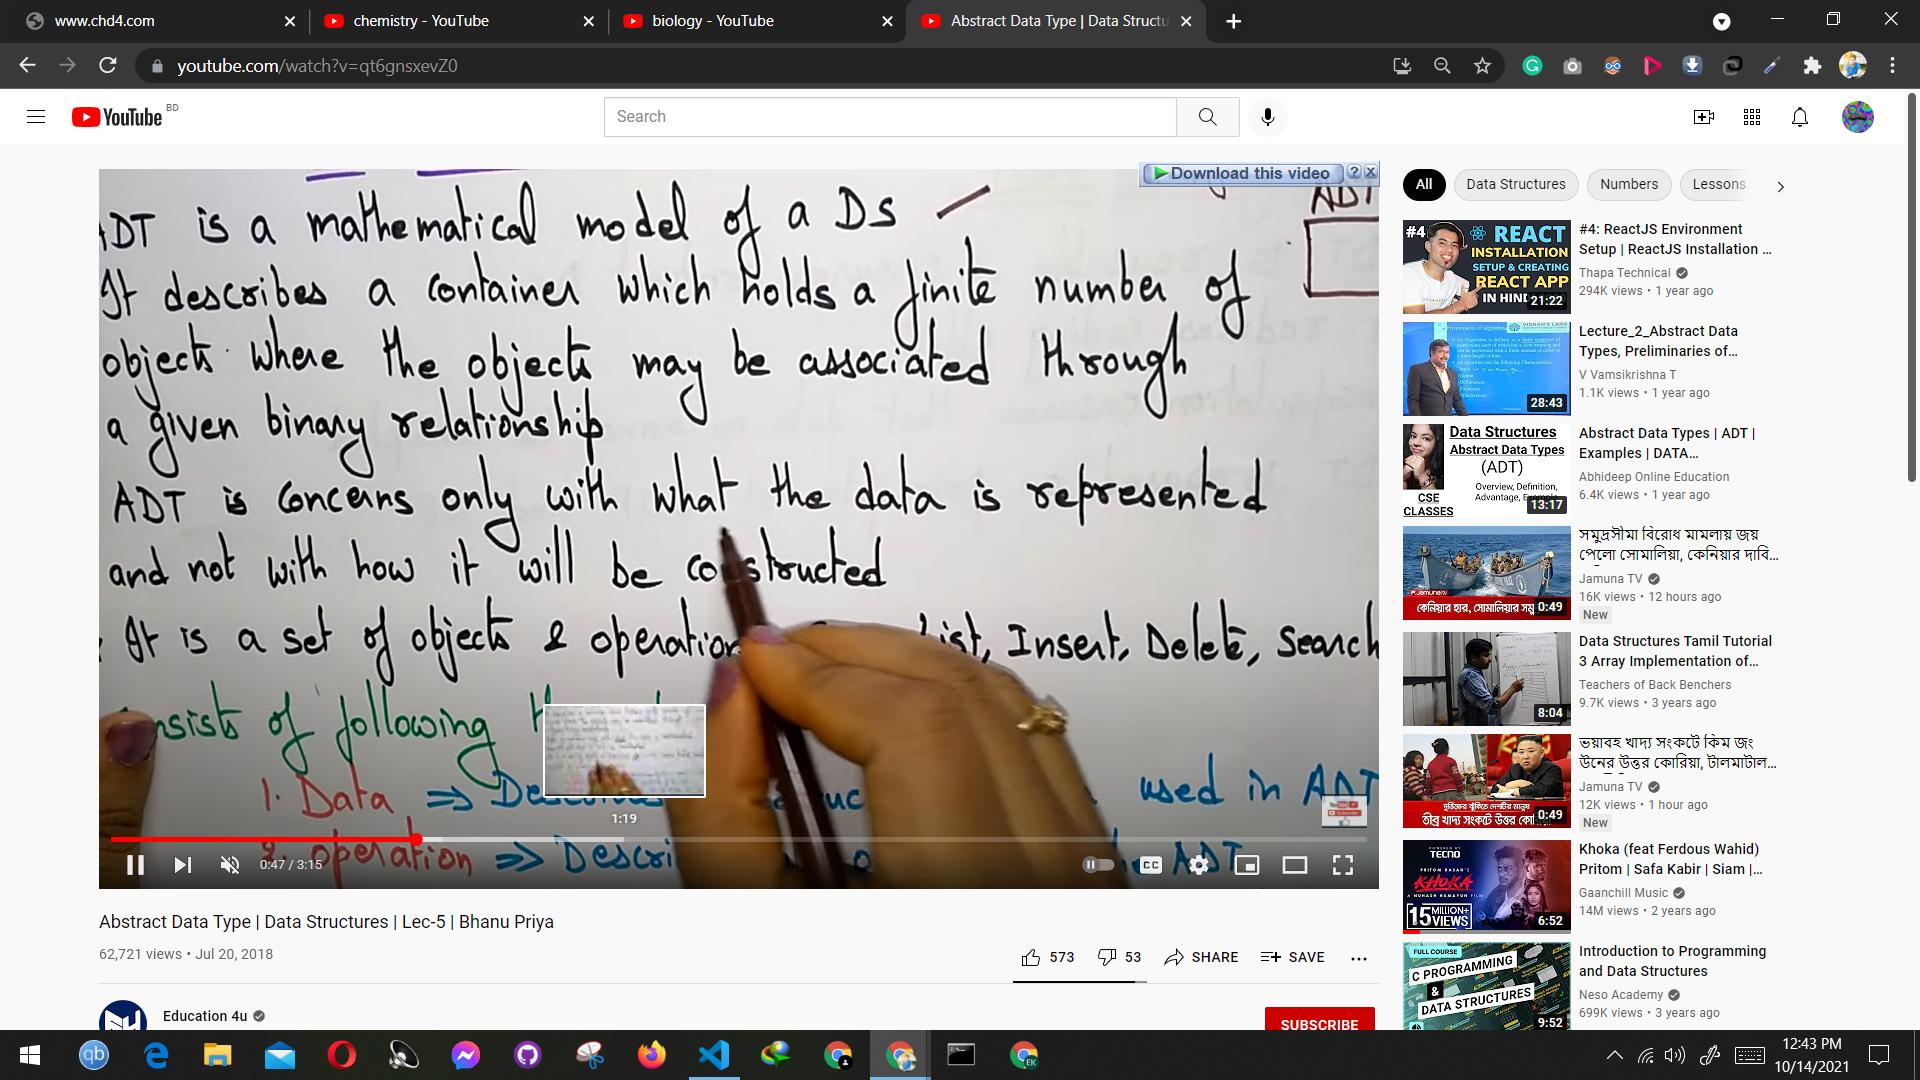 www.chd4.com
chemistry - YouTube
biology - YouTube
Abstract Data Type | Data Structu
youtube.com/watch?v=qt6gnsxevZ0
YouTube BD
Search
Download this video ? X
ADT is a mathematical model of a DS
It describes a container which holds a finite number of
objects where the objects may be associated through
a given binary relationship
ADT is concerns only with what the data is represented
and not with how it will be constructed
It is a set of objects & operation List, Insert, Delete, Search
nsists of following
1. Data => Describes used in ADT
2. operation => Descri ADT
ADT
1:19
0:47 / 3:15
CC
Abstract Data Type | Data Structures | Lec-5 | Bhanu Priya
62,721 views • Jul 20, 2018
573
53
SHARE
SAVE
Education 4u
SUBSCRIBE
All
Data Structures
Numbers
Lessons
#4 REACT
INSTALLATION
SETUP & CREATING
REACT APP
IN HIND
21:22
#4: ReactJS Environment
Setup | ReactJS Installation ...
Thapa Technical
294K views • 1 year ago
28:43
Lecture_2_Abstract Data
Types, Preliminaries of...
V Vamsikrishna T
1.1K views • 1 year ago
Data Structures
Abstract Data Types
(ADT)
Overview, Definition,
Advantage, Example
CSE
CLASSES
13:17
Abstract Data Types | ADT |
Examples | DATA...
Abhideep Online Education
6.4K views • 1 year ago
কেনিয়ার হার, সোমালিয়ার সমু
0:49
সমুদ্রসীমা বিরোধ মামলায় জয়
পেলো সোমালিয়া, কেনিয়ার দাবি...
Jamuna TV
16K views • 12 hours ago
New
8:04
Data Structures Tamil Tutorial
3 Array Implementation of...
Teachers of Back Benchers
9.7K views • 3 years ago
দুর্ভিক্ষের ঝুঁকিতে দেশটির মানুষ
তীব্র খাদ্য সংকটে উত্তর কো
0:49
ভয়াবহ খাদ্য সংকটে কিম জং
উনের উত্তর কোরিয়া, টালমাটাল...
Jamuna TV
12K views • 1 hour ago
New
TECNO
PRITOM HASAN'S
KHOKA
A NUHASH HUMAYUN FILM
15 MILLION+
VIEWS
6:52
Khoka (feat Ferdous Wahid)
Pritom | Safa Kabir | Siam |...
Gaanchill Music
14M views • 2 years ago
FULL COURSE
C PROGRAMMING
&
DATA STRUCTURES
9:52
Introduction to Programming
and Data Structures
Neso Academy
699K views • 3 years ago
12:43 PM
10/14/2021